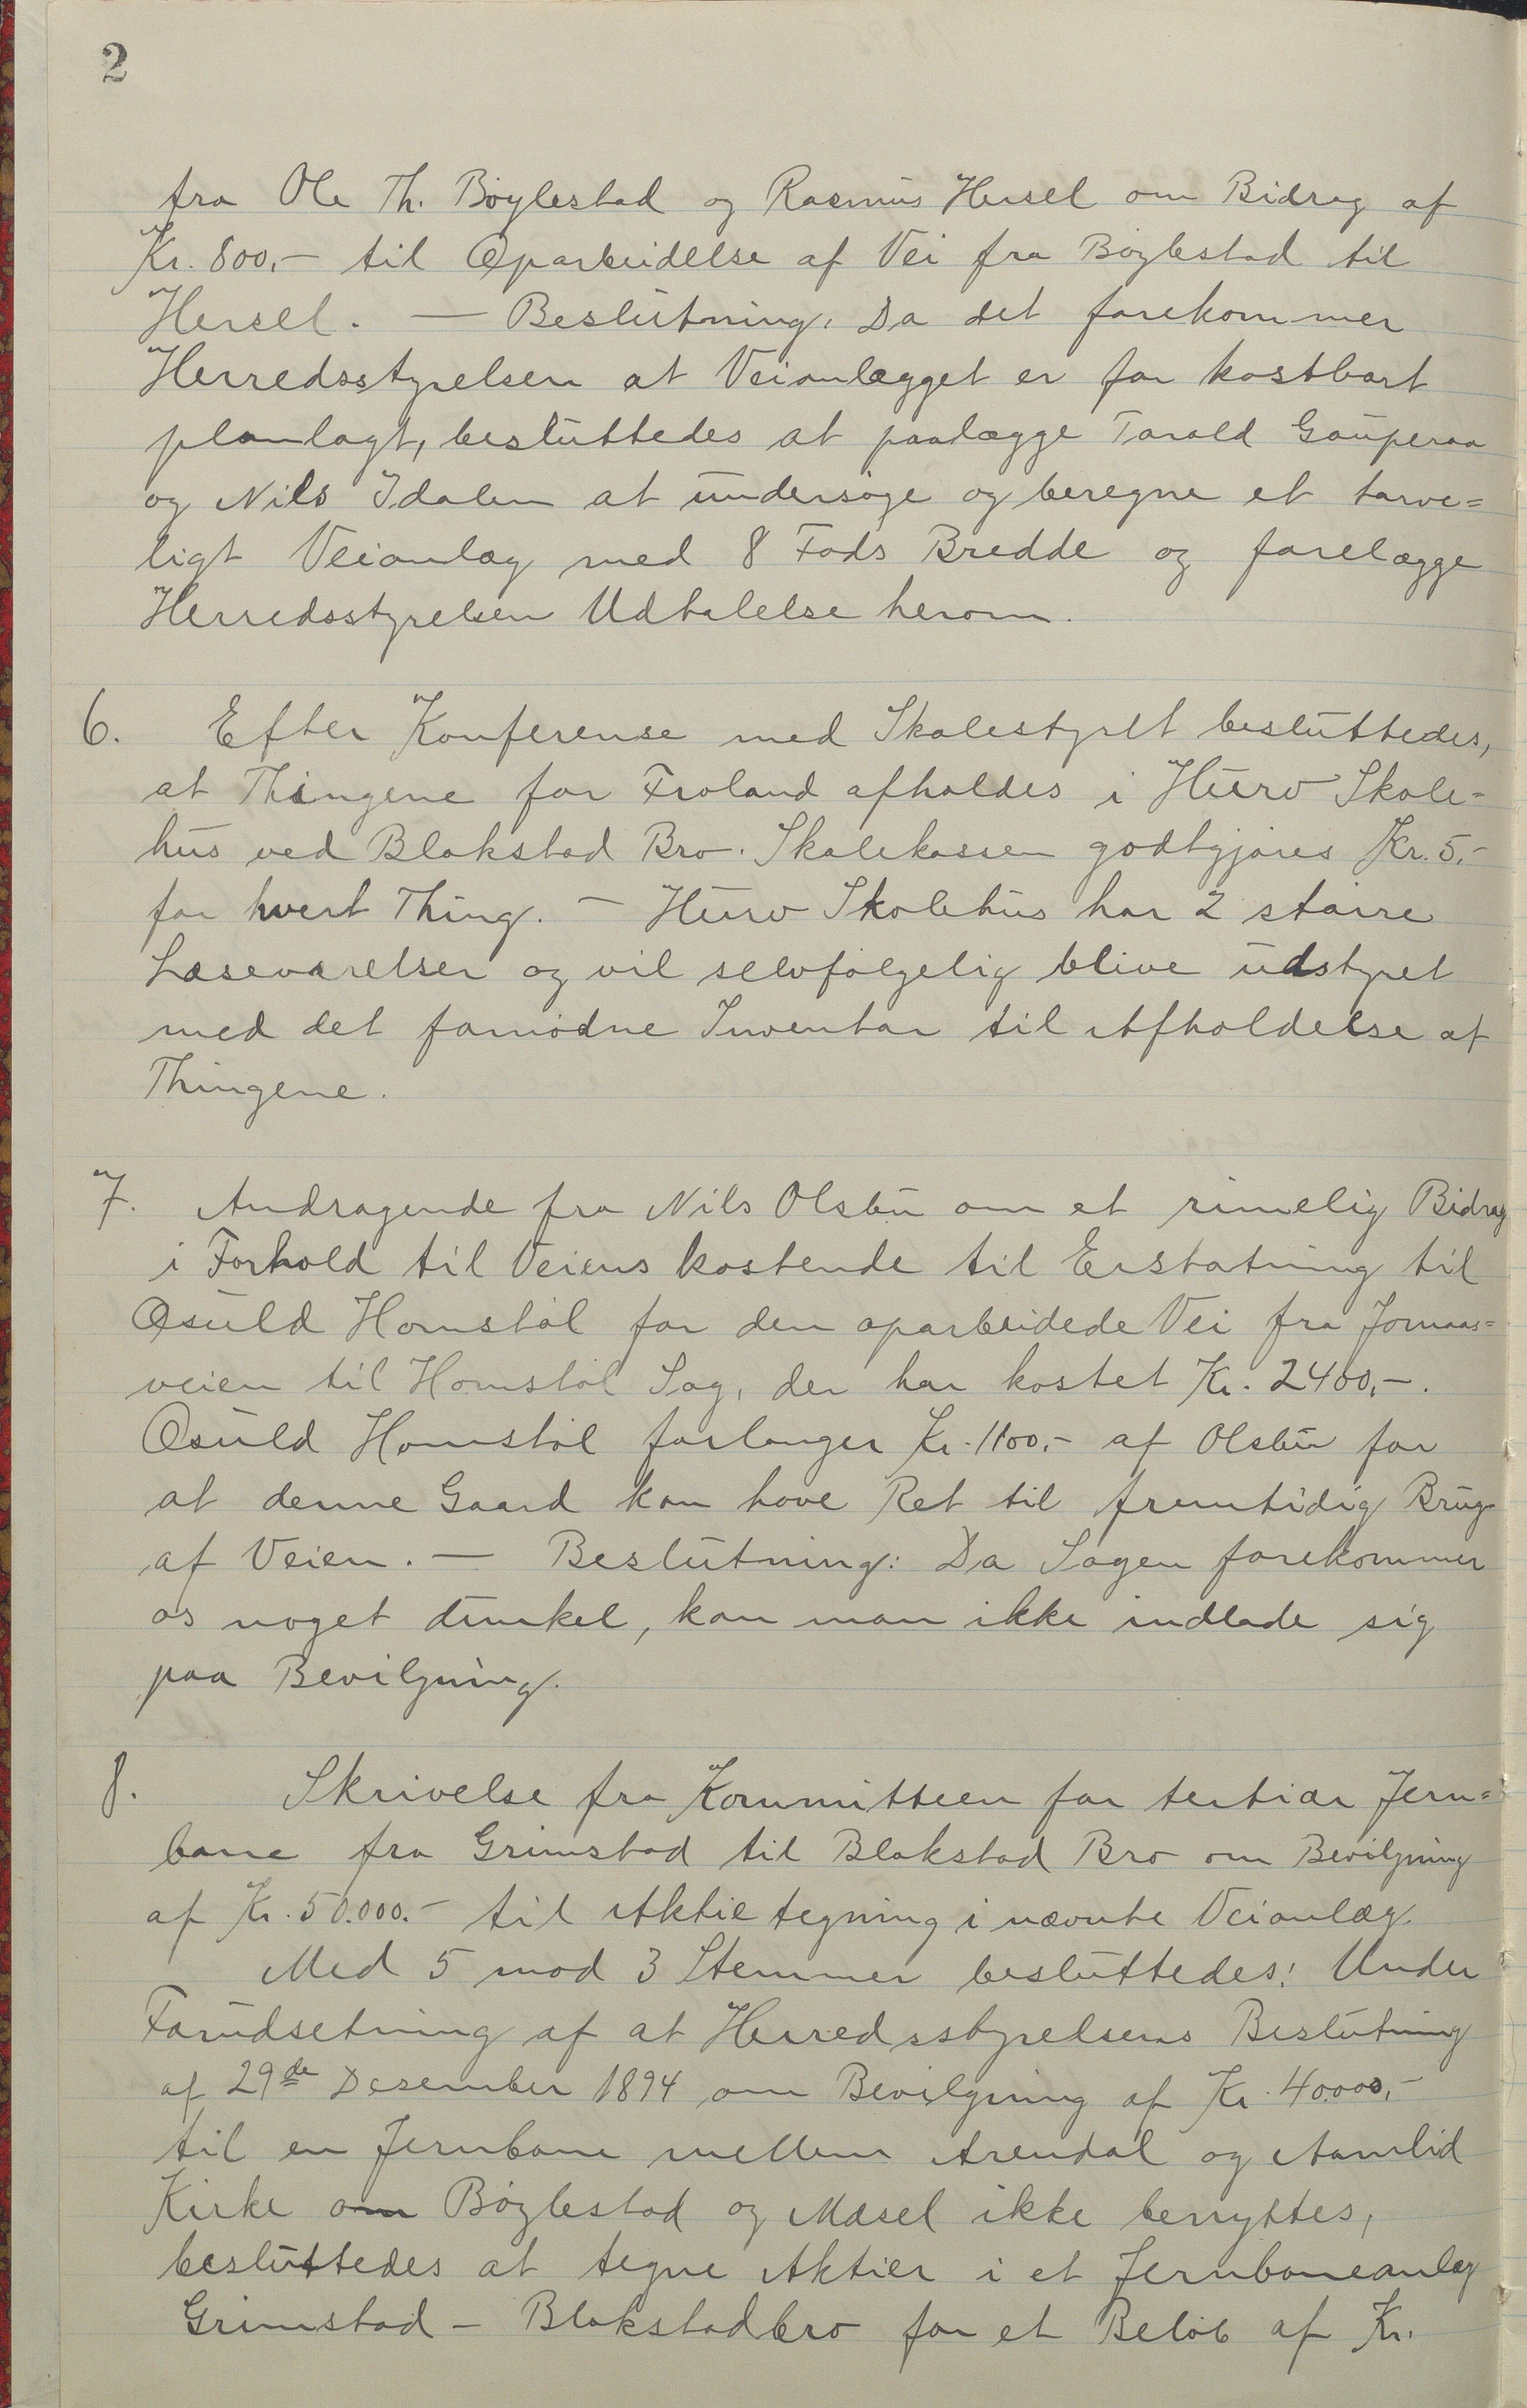 2
fra Ole Th. Bøylestad og Rasmus Hersel om Bidrag af
Kr. 800,- til Oparbeidelse af Vei fra Bøylestad til
Hersel. — Beslutning: Da det forekommer
Herredsstyrelsen at Veianlægget er for kostbart
planlagt, besluttedes at paalægge Tarald Gauperaa
og Nils Idalen at undersøge og beregne et tarve=
ligt Veianlæg med 8 Fods Bredde og forelægge
Herredsstyrelsen Udtalelse herom.
6. Efter Konferense med Skolestyret besluttedes,
at Thingene for Froland afholdes i Hurv Skole-
hus ved Blakstad Bro. Skolekassen godtgjøres Kr. 5,-
for hvert Thing. — Hurv Skolehus har 2 større
Læseværelser og vil selvfølgelig blive udstyret
med det fornødne Inventar til Afholdelse af
Thingene.
7. Andragende fra Nils Olsbu om et rimelig Bidrag
i Forhold til Veiens kostende til Erstatning til
Osuld Homstøl for den oparbeidede Vei fra Jomaas=
veien til Homstøl Sag, der har kostet Kr. 2400,-.
Osuld Homstøl forlanger Kr. 1100,- af Olsbu for
at denne Gaard kan have Ret til fremtidig Brug
af Veien. — Beslutning: Da Sagen forekommer
os noget dunkel, kan man ikke indlade sig
paa Bevilgning.
8. Skrivelse fra Kommitteen for tertiær Jern=
bane fra Grimstad til Blakstad Bro om Bevilgning
af Kr. 50.000.- til Aktietegning i nævnte Veianlæg.
Med 5 mod 3 Stemmer besluttedes: Under
Forudsetning af at Herredsstyrelsens Beslutning
af 29de Desember 1894 om Bevilgning af Kr. 40000,-
til en Jernbane mellem Arendal og Aamlid
Kirke om Bøylestad og Mæsel ikke benyttes,
besluttedes at tegne Aktier i et Jernbaneanlæg
Grimstad - Blakstadbro for et Beløb af Kr.